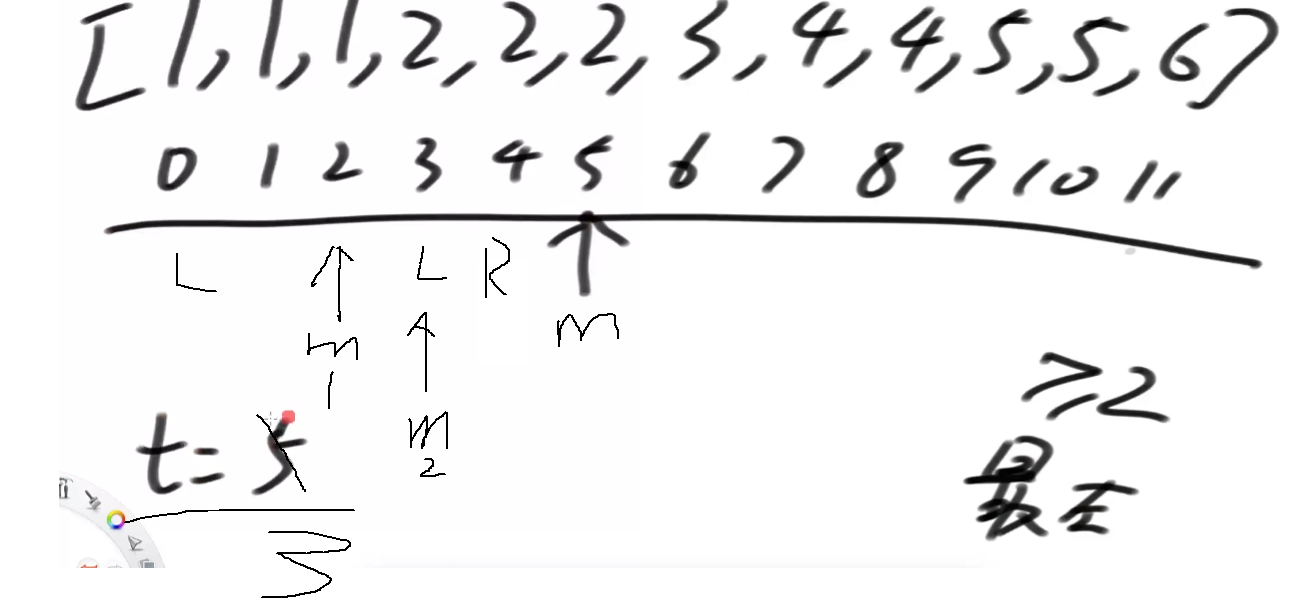 [1,1,1,2,2,2,3,4,4,5,5,6]
0 1 2 3 4 5 6 7 8 9 10 11
L ↑ L R ↑
m ↑ m
1
≥2
t=5 m
2
最左
3